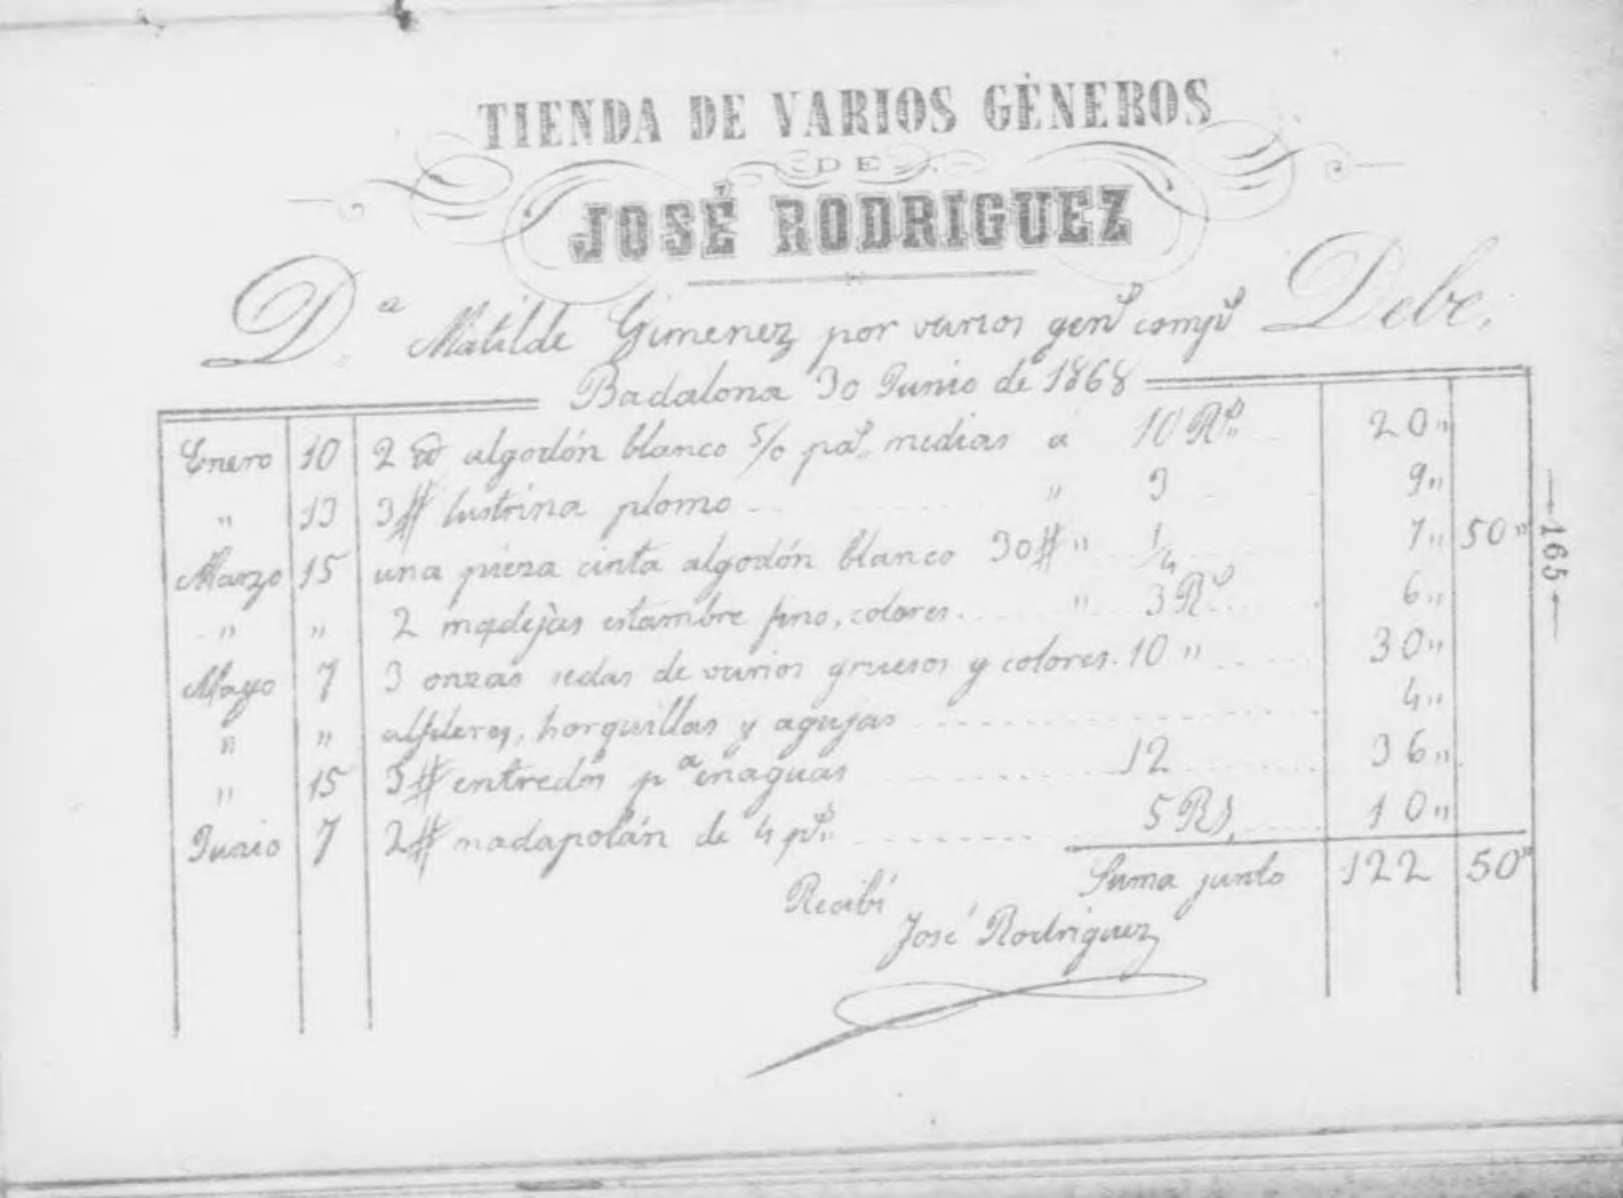 TIENDA DE VARIOS GÉNEROS
DE
JOSÉ RODRIGUEZ
D.ª Matilde Gimenez por varios genˢ compˢ Debe,
Badalona 30 Junio de 1868
Enero 10 2 ℔ algodón blanco 5/0 pª medias á 10 Rˢ 20"
" 13 3# lustrina plomo " 3 9"
Marzo 15 una pieza cinta algodón blanco 30# " 1/4 7" 50"
" " 2 madejas estambre fino, colores. " 3 Rˢ 6"
Mayo 7 3 onzas sedas de varios gruesos y colores. 10 " 30"
" " alfileres, horquillas y agujas 4"
" 15 3# entredós pª enaguas 12 36"
Junio 7 2# madapolán de 4 pˢ 5 Rs, 10"
Suma junto 122 50"
Recibí
José Rodriguez
165